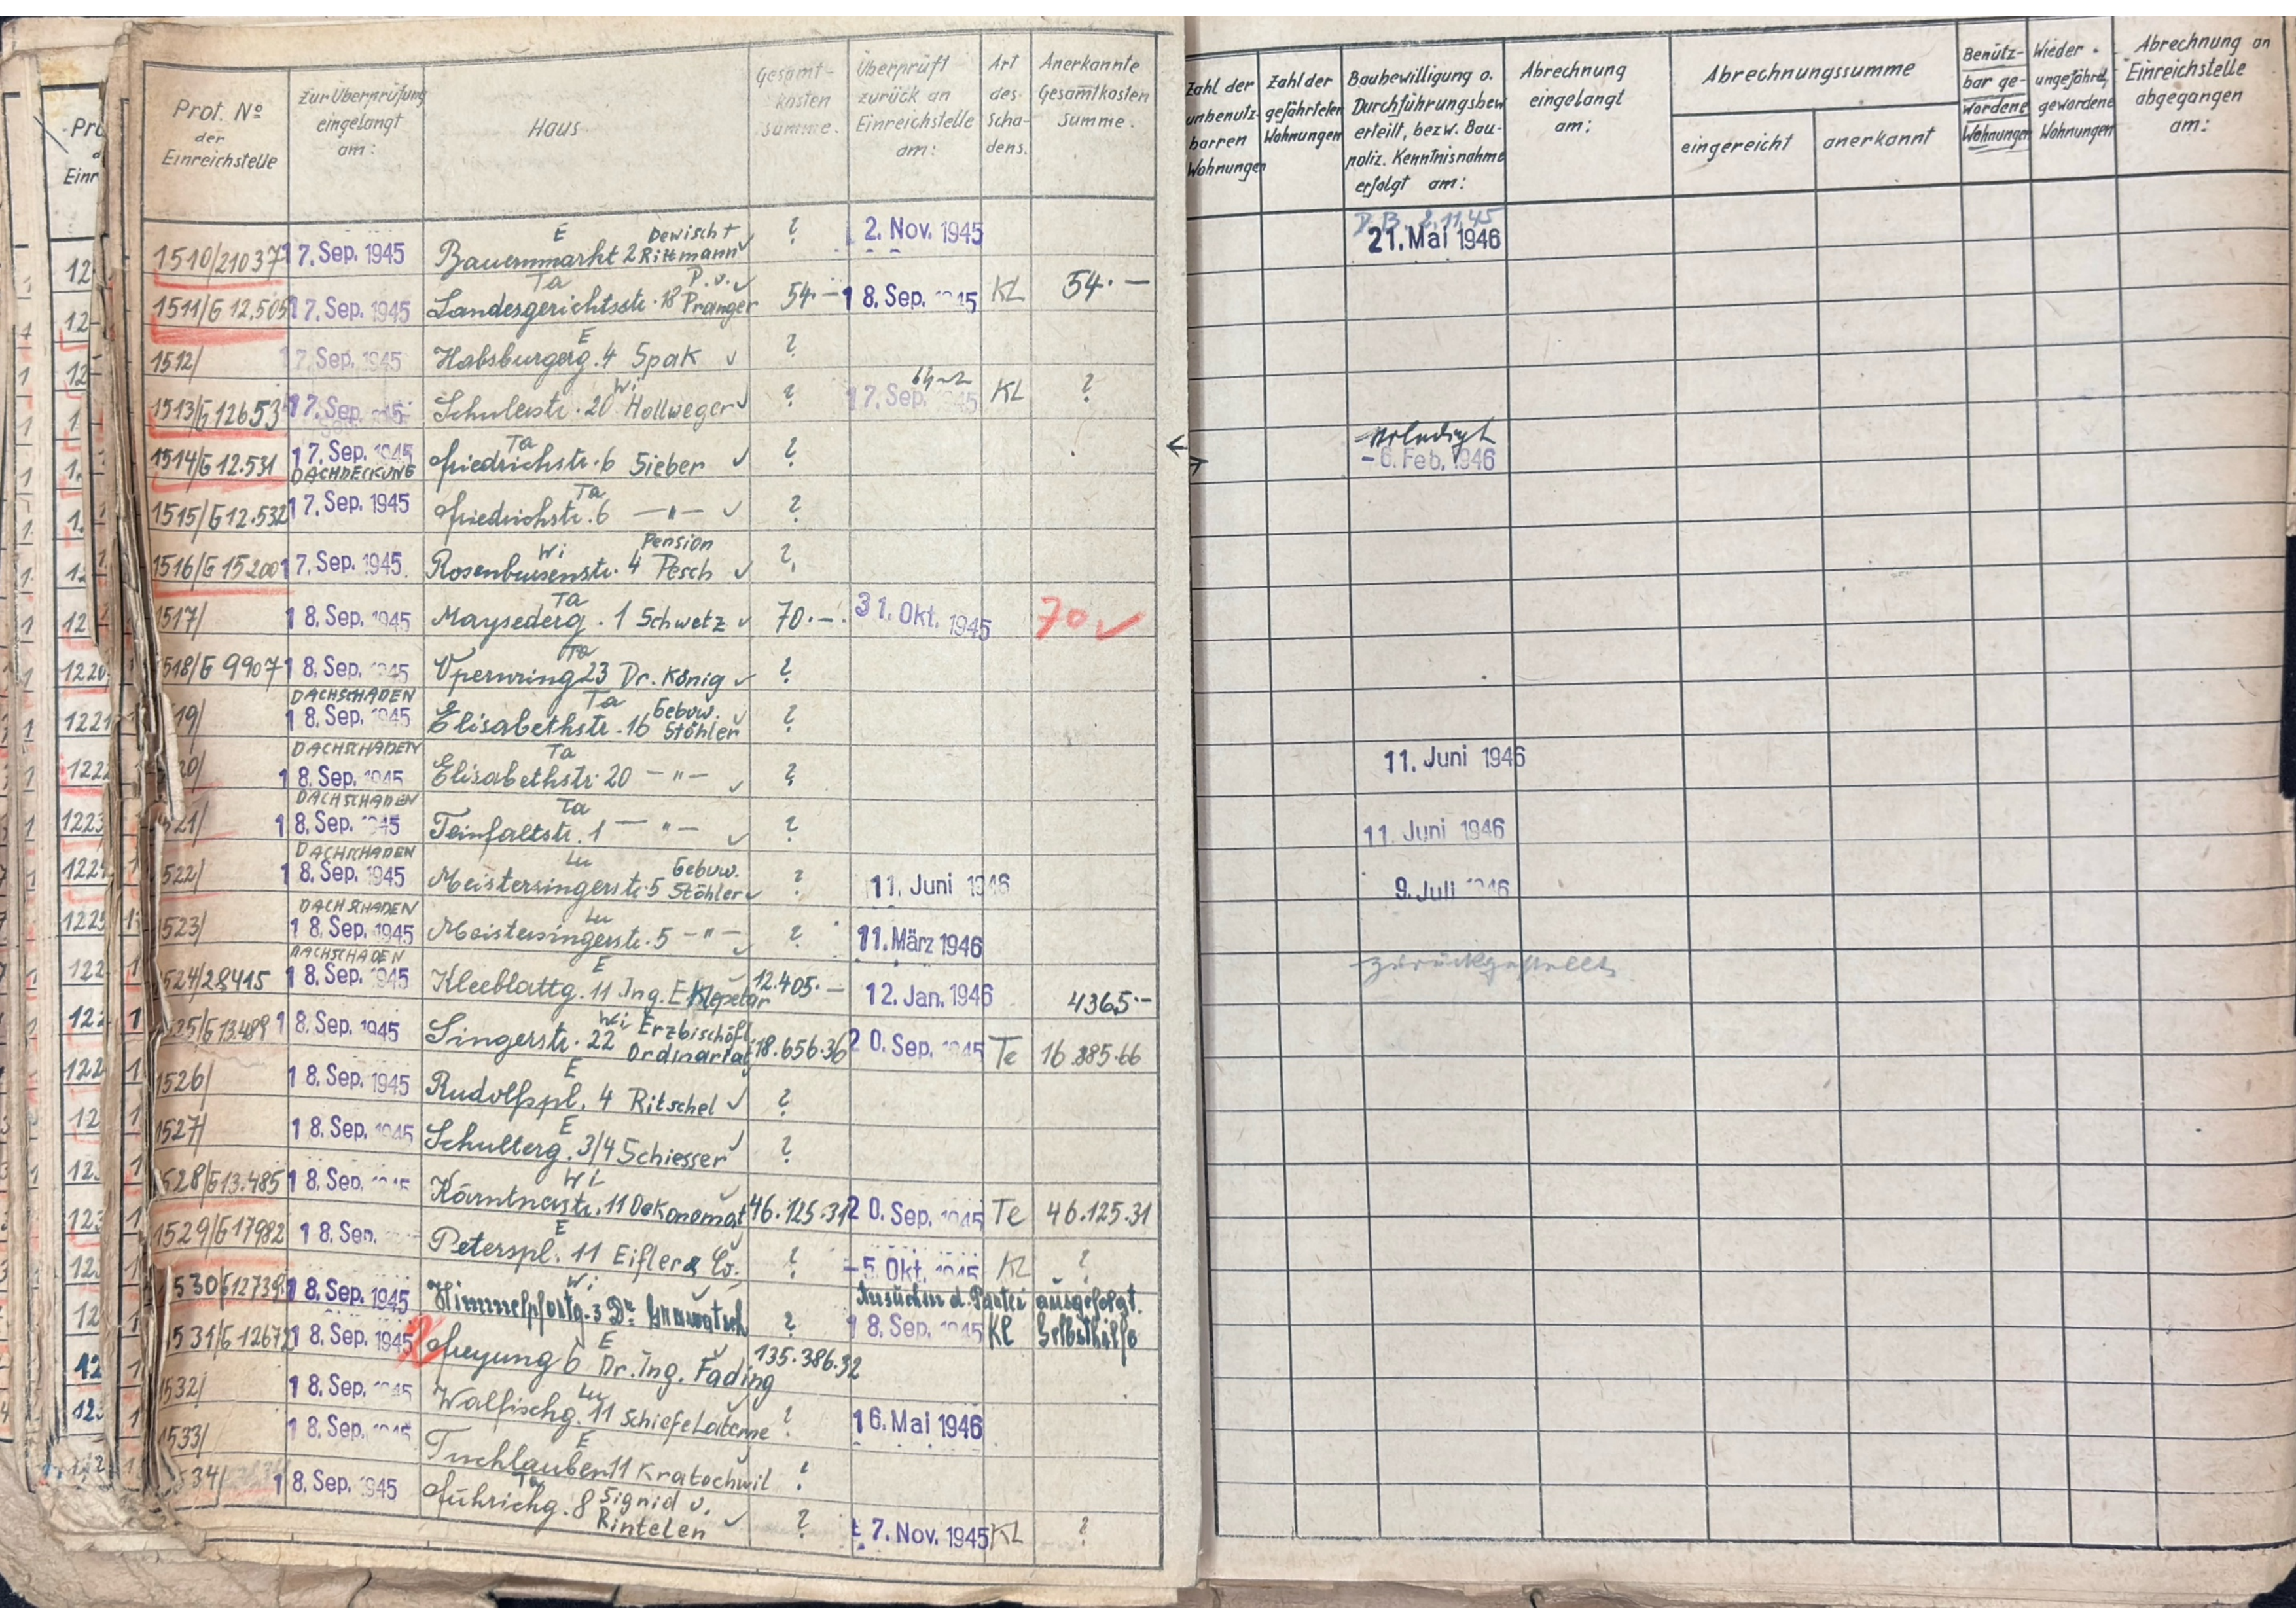 Prot. No der Einreichstelle
Zur Überprüfung eingelangt am:
Haus
Gesamt-kosten summe.
Überprüft zurück an Einreichstelle am:
Art des Scha-dens.
Anerkannte Gesamtkosten Summe.
Zahl der unbenutz-barren Wohnungen
Zahl der gefährteten Wohnungen
Baubewilligung o. Durchführungsbew. erteilt, bezw. Bau-poliz. Kenntnisnahme erfolgt am:
Abrechnung eingelangt am:
Abrechnungssumme
eingereicht
anerkannt
Benütz-bar ge-wordene Wohnungen
Wieder. ungefährd. gewordene Wohnungen
Abrechnung an Einreichstelle abgegangen am:
D.B. 2.11.45
1510/21037 17. Sep. 1945 Bauernmarkt 2 E Dewischt Rittmann ✓ ? 2. Nov. 1945 21. Mai 1946
1511/G 12.505 17. Sep. 1945 Landesgerichtsstr. 18 Ta P.v. Pranger ✓ 54.— 18. Sep. 1945 KL 54.—
1512/ 17. Sep. 1945 Habsburgerg. 4 E Spak ✓ ?
1513/G 12653 17. Sep. 1945 Schulerstr. 20 Wi Hollweger ✓ ? 17. Sep. 1945 KL ?
1514/G 12.531 17. Sep. 1945 DACHDECKUNG Friedrichstr. 6 Ta Sieber ✓ ? erledigt - 6. Feb. 1946
1515/G 12.532 17. Sep. 1945 Friedrichstr. 6 Ta —"— ✓ ?
1516/G 15200 17. Sep. 1945 Rosenbursenstr. 4 Wi Pension Pesch ✓ ?
1517/ 18. Sep. 1945 Maysederg. 1 Ta Schwetz ✓ 70.— 31. Okt. 1945 70 ✓
1518/G 9907 18. Sep. 1945 Opernring 23 Ta Dr. König ✓ ?
19/ DACHSCHADEN 18. Sep. 1945 Elisabethstr. 16 Ta Gebuw. Stöhler ✓ ?
20/ DACHSCHADEN 18. Sep. 1945 Elisabethstr. 20 Ta —"— ✓ ? 11. Juni 1946
521/ DACHSCHADEN 18. Sep. 1945 Teinfaltstr. 1 Ta —"— ✓ ? 11. Juni 1946
522/ DACHSCHADEN 18. Sep. 1945 Meistersingerstr. 5 Lu Gebuw. Stöhler ✓ ? 11. Juni 1946 9. Juli 1946
523/ DACHSCHADEN 18. Sep. 1945 Meistersingerstr. 5 Lu —"— ✓ ? 11. März 1946
524/28415 DACHSCHADEN 18. Sep. 1945 Kleeblattg. 11 E Ing. E Klepetar 12.405.— 12. Jan. 1946 4365.— zurückgestellt
525/G 13.489 18. Sep. 1945 Singerstr. 22 Wi Erzbischöfl. Ordinariat 18.656.36 20. Sep. 1945 Te 16.885.66
1526/ 18. Sep. 1945 Rudolfspl. 4 E Ritschel ✓ ?
1527/ 18. Sep. 1945 Schulterg. 3/4 E Schiesser ✓ ?
528/G 13.485 18. Sep. 1945 Kärntnerstr. 11 Wi Oekonomat ✓ 46.125.31 20. Sep. 1945 Te 46.125.31
1529/G 17982 18. Sep. Peterspl. 11 E Eifler & Co. ? - 5. Okt. 1945 KL ?
530/G 12739 18. Sep. 1945 Himmelpfortg. 3 Wi Dr. ✓ ? Ansuchen d. Partei ausgefolgt. 18. Sep. 1945 KL Selbsthilfe
531/G 12672 18. Sep. 1945 Freyung 6 E Dr. Ing. Fading 135.386.32
1532/ 18. Sep. 1945 Walfischg. 11 Lu Schiefe Laterne ? 16. Mai 1946
1533/ 18. Sep. 1945 Tuchlauben 11 E Kratochwil ✓ ?
534/ 18. Sep. 1945 Führichg. 8 Ta Signid v. Rintelen ✓ ? 17. Nov. 1945 KL ?
1220
1221
1222
1223
1224
1225